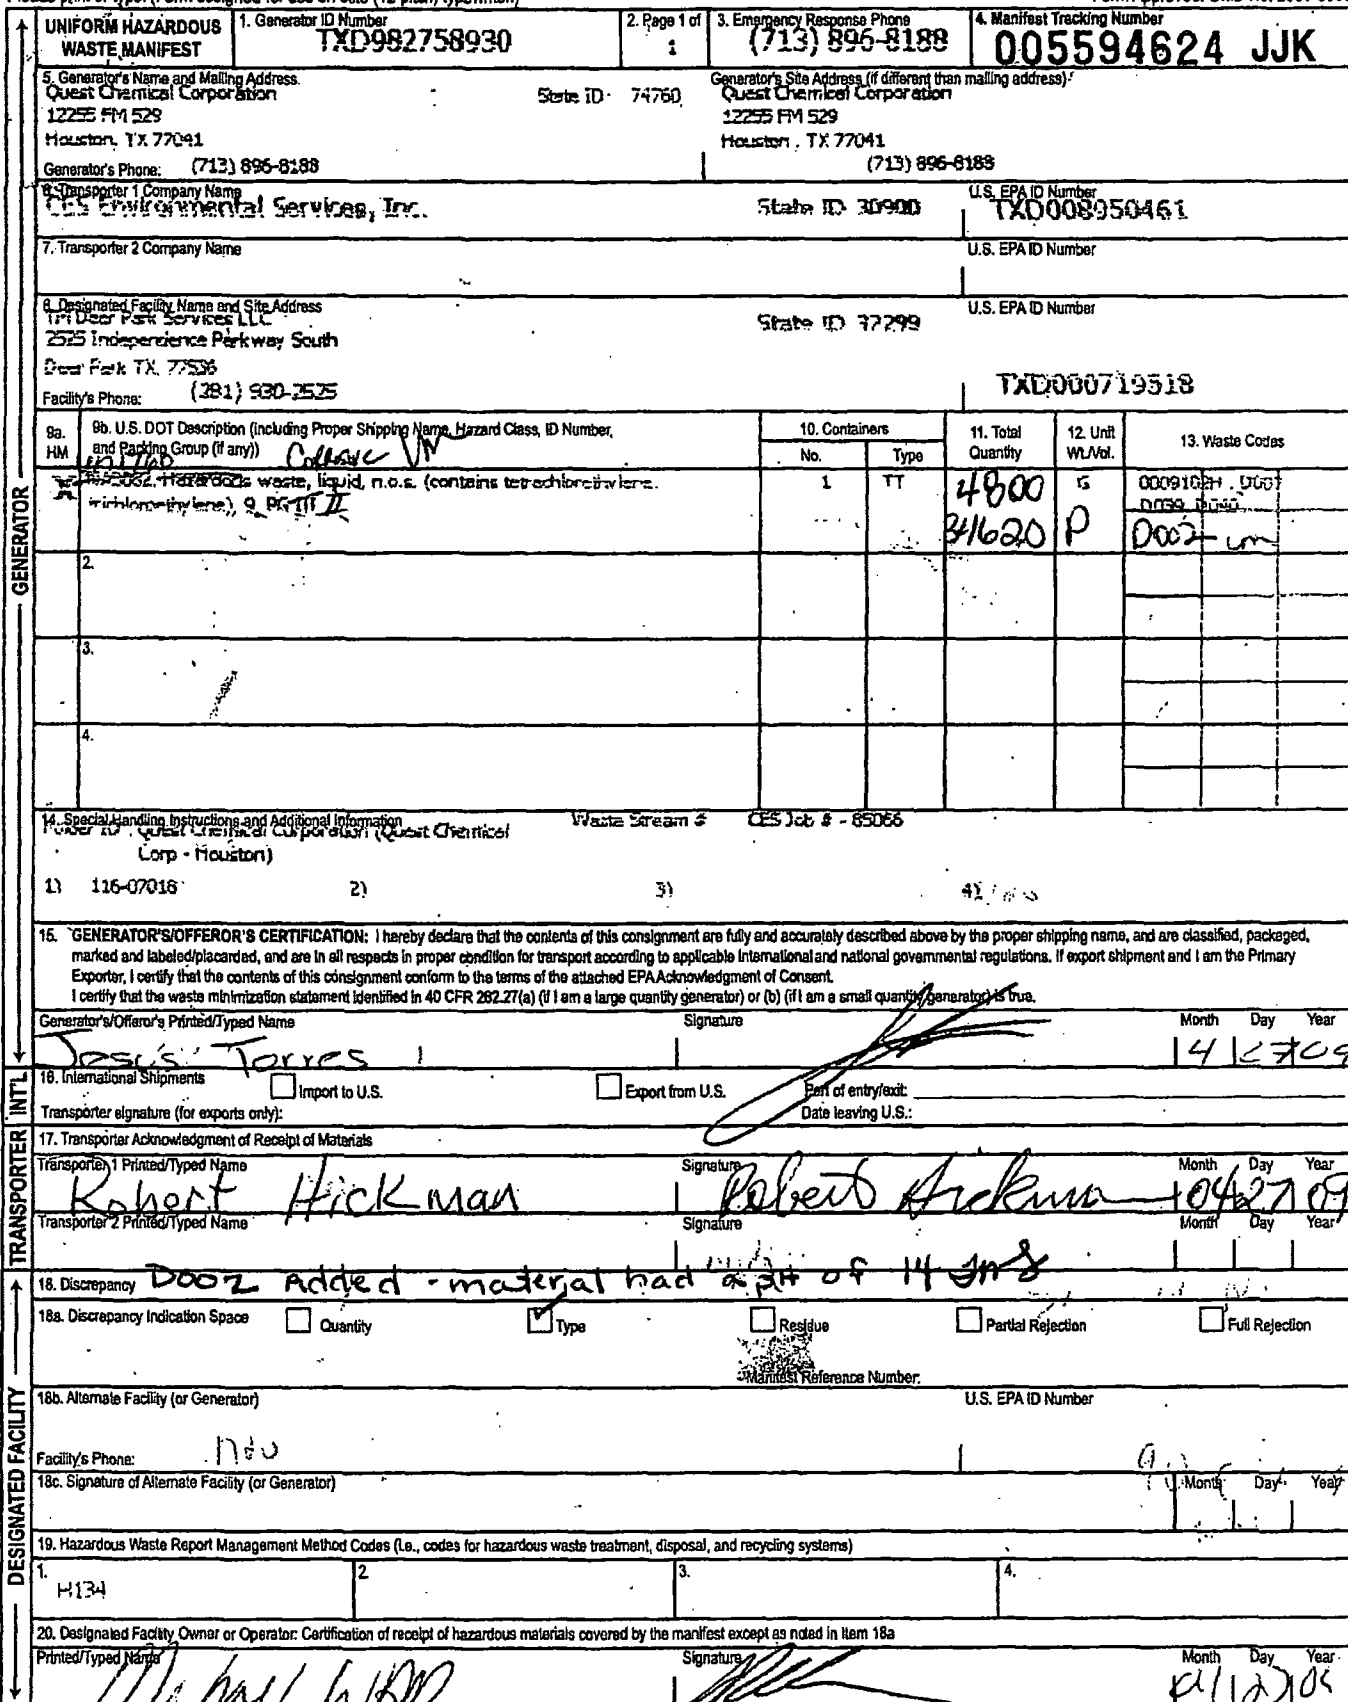 UNIFORM HAZARDOUS WASTE MANIFEST
1. Generator ID Number
TXD982758930
2. Page 1 of
1
3. Emergency Response Phone
(713) 896-8188
4. Manifest Tracking Number
005594624 JJK
5. Generator's Name and Mailing Address
Quest Chemical Corporation State ID 74760
12255 FM 529
Houston, TX 77041
Generator's Phone: (713) 896-8188
Generator's Site Address (if different than mailing address)
Quest Chemical Corporation
12255 FM 529
Houston, TX 77041
(713) 896-8188
6. Transporter 1 Company Name
CES Environmental Services, Inc. State ID 30900
U.S. EPA ID Number
TXD008950461
7. Transporter 2 Company Name
U.S. EPA ID Number
8. Designated Facility Name and Site Address
Deer Park Services LLC State ID 37299
2525 Independence Parkway South
Deer Park TX, 77536
Facility's Phone: (281) 930-2525
U.S. EPA ID Number
TXD000719518
9a. HM
9b. U.S. DOT Description (including Proper Shipping Name, Hazard Class, ID Number, and Packing Group (if any))
10. Containers
No.
Type
11. Total Quantity
12. Unit Wt./Vol.
13. Waste Codes
UN1760 Corrosive
Hazardous waste, liquid, n.o.s. (contains tetrachloroethylene,
trichloroethylene), 9, PG III II
1 TT 4800 G 0009102H
D039 D040
34620 P D002
2.
3.
4.
14. Special Handling Instructions and Additional Information
Quest Chemical Corporation (Quest Chemical Corp - Houston)
Waste Stream # CES Job # - 85066
1) 116-07018 2) 3) 4)
15. GENERATOR'S/OFFEROR'S CERTIFICATION: I hereby declare that the contents of this consignment are fully and accurately described above by the proper shipping name, and are classified, packaged,
marked and labeled/placarded, and are in all respects in proper condition for transport according to applicable international and national governmental regulations. If export shipment and I am the Primary
Exporter, I certify that the contents of this consignment conform to the terms of the attached EPA Acknowledgment of Consent.
I certify that the waste minimization statement identified in 40 CFR 262.27(a) (if I am a large quantity generator) or (b) (if I am a small quantity generator) is true.
Generator's/Offeror's Printed/Typed Name
Signature
Month Day Year
Jesus Torres
4 27 09
16. International Shipments
Import to U.S.
Export from U.S.
Port of entry/exit:
Transporter signature (for exports only):
Date leaving U.S.:
17. Transporter Acknowledgment of Receipt of Materials
Transporter 1 Printed/Typed Name
Signature
Month Day Year
Robert Hickman
Robert Hickman
04 27 09
Transporter 2 Printed/Typed Name
Signature
Month Day Year
18. Discrepancy D002 Added - material had a pH of 14
18a. Discrepancy Indication Space
Quantity
Type
Residue
Partial Rejection
Full Rejection
Manifest Reference Number:
18b. Alternate Facility (or Generator)
U.S. EPA ID Number
Facility's Phone:
18c. Signature of Alternate Facility (or Generator)
Month Day Year
19. Hazardous Waste Report Management Method Codes (i.e., codes for hazardous waste treatment, disposal, and recycling systems)
1.
H134
2.
3.
4.
20. Designated Facility Owner or Operator: Certification of receipt of hazardous materials covered by the manifest except as noted in Item 18a
Printed/Typed Name
Signature
Month Day Year
Michael
GENERATOR
INT'L
TRANSPORTER
DESIGNATED FACILITY